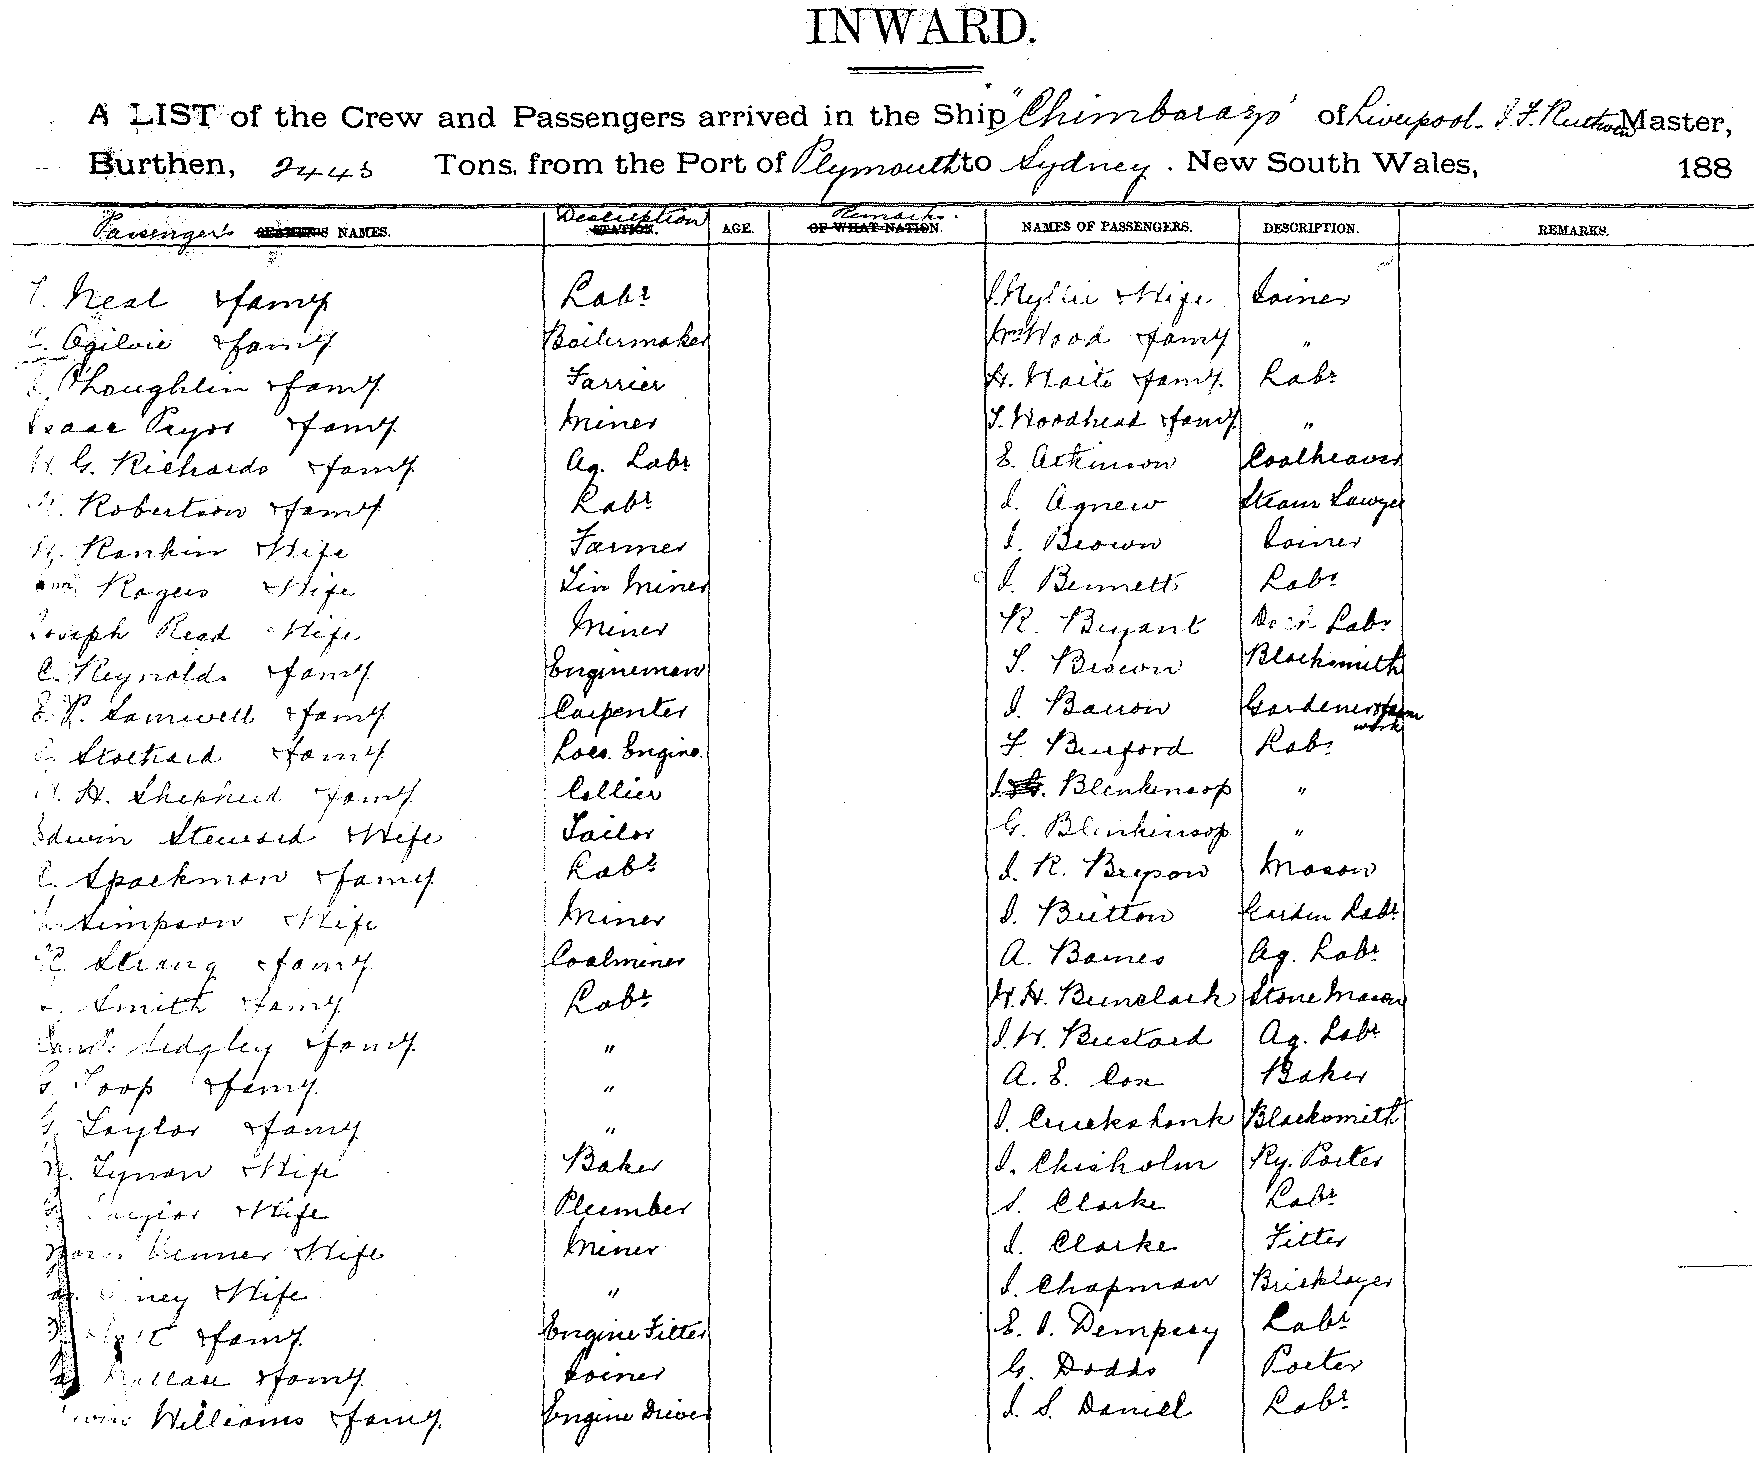 INWARD.
A LIST of the Crew and Passengers arrived in the Ship "Chimborazo" of Liverpool. Master,
Burthen, 2443 Tons, from the Port of Plymouth to Sydney. New South Wales, 188
Passengers NAMES. Description STATION. AGE. Remarks. OF WHAT NATION. NAMES OF PASSENGERS. DESCRIPTION. REMARKS.
Neal & famy Labr & Wife Joiner
Ogilvie & famy Boilermaker Wm Wood & famy "
O'Loughlin & famy Farrier H. Waite & famy Labr
Isaac Pryor & famy Miner Woodhead & famy "
W. G. Richards & famy Ag. Labr E. Atkinson Coalheaver
Robertson & famy Labr J. Agnew Steam Sawyer
Rankin & Wife Farmer J. Brown Joiner
Rogers & Wife Tin Miner J. Bennett Labr
Joseph Read & Wife Miner R. Bryant Dock Labr
C. Reynolds & famy Engineman Brown Blacksmith
E. P. Samwell & famy Carpenter J. Barron Gardener & farm work
Stothard & famy Loco. Engine. Burford Labr
H. Shepherd & famy Collier J. Blenkinsop "
Edwin Steward & Wife Tailor G. Blenkinsop "
Spackman & famy Labr J. R. Bryson Mason
Simpson & Wife Miner J. Britton Garden Labr
Strang & famy Coalminer A. Barnes Ag. Labr
Smith & famy Labr W. H. Bunclark Stone Mason
Sedgley & famy " J. W. Bustard Ag. Labr
Toop & famy " A. E. Cox Baker
G. Taylor & famy " J. Cruckshank Blacksmith
Tynan & Wife Baker J. Chisholm Ry. Porter
Taylor & Wife Plumber S. Clarke Labr
Venner & Wife Miner J. Clarke Fitter
& Wife " J. Chapman Bricklayer
& famy Engine Fitter E. J. Dempsey Labr
Wallace & famy Joiner G. Dodds Porter
Williams & famy Engine Driver J. S. Daniel Labr